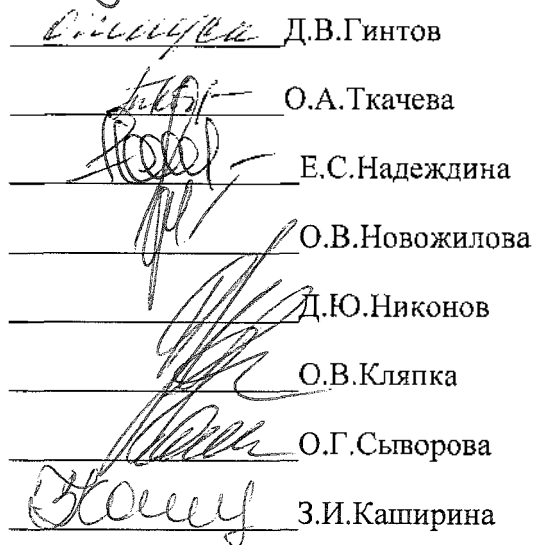 отпуск Д.В.Гинтов
О.А.Ткачева
Е.С.Надеждина
О.В.Новожилова
Д.Ю.Никонов
О.В.Кляпка
О.Г.Сыворова
З.И.Каширина